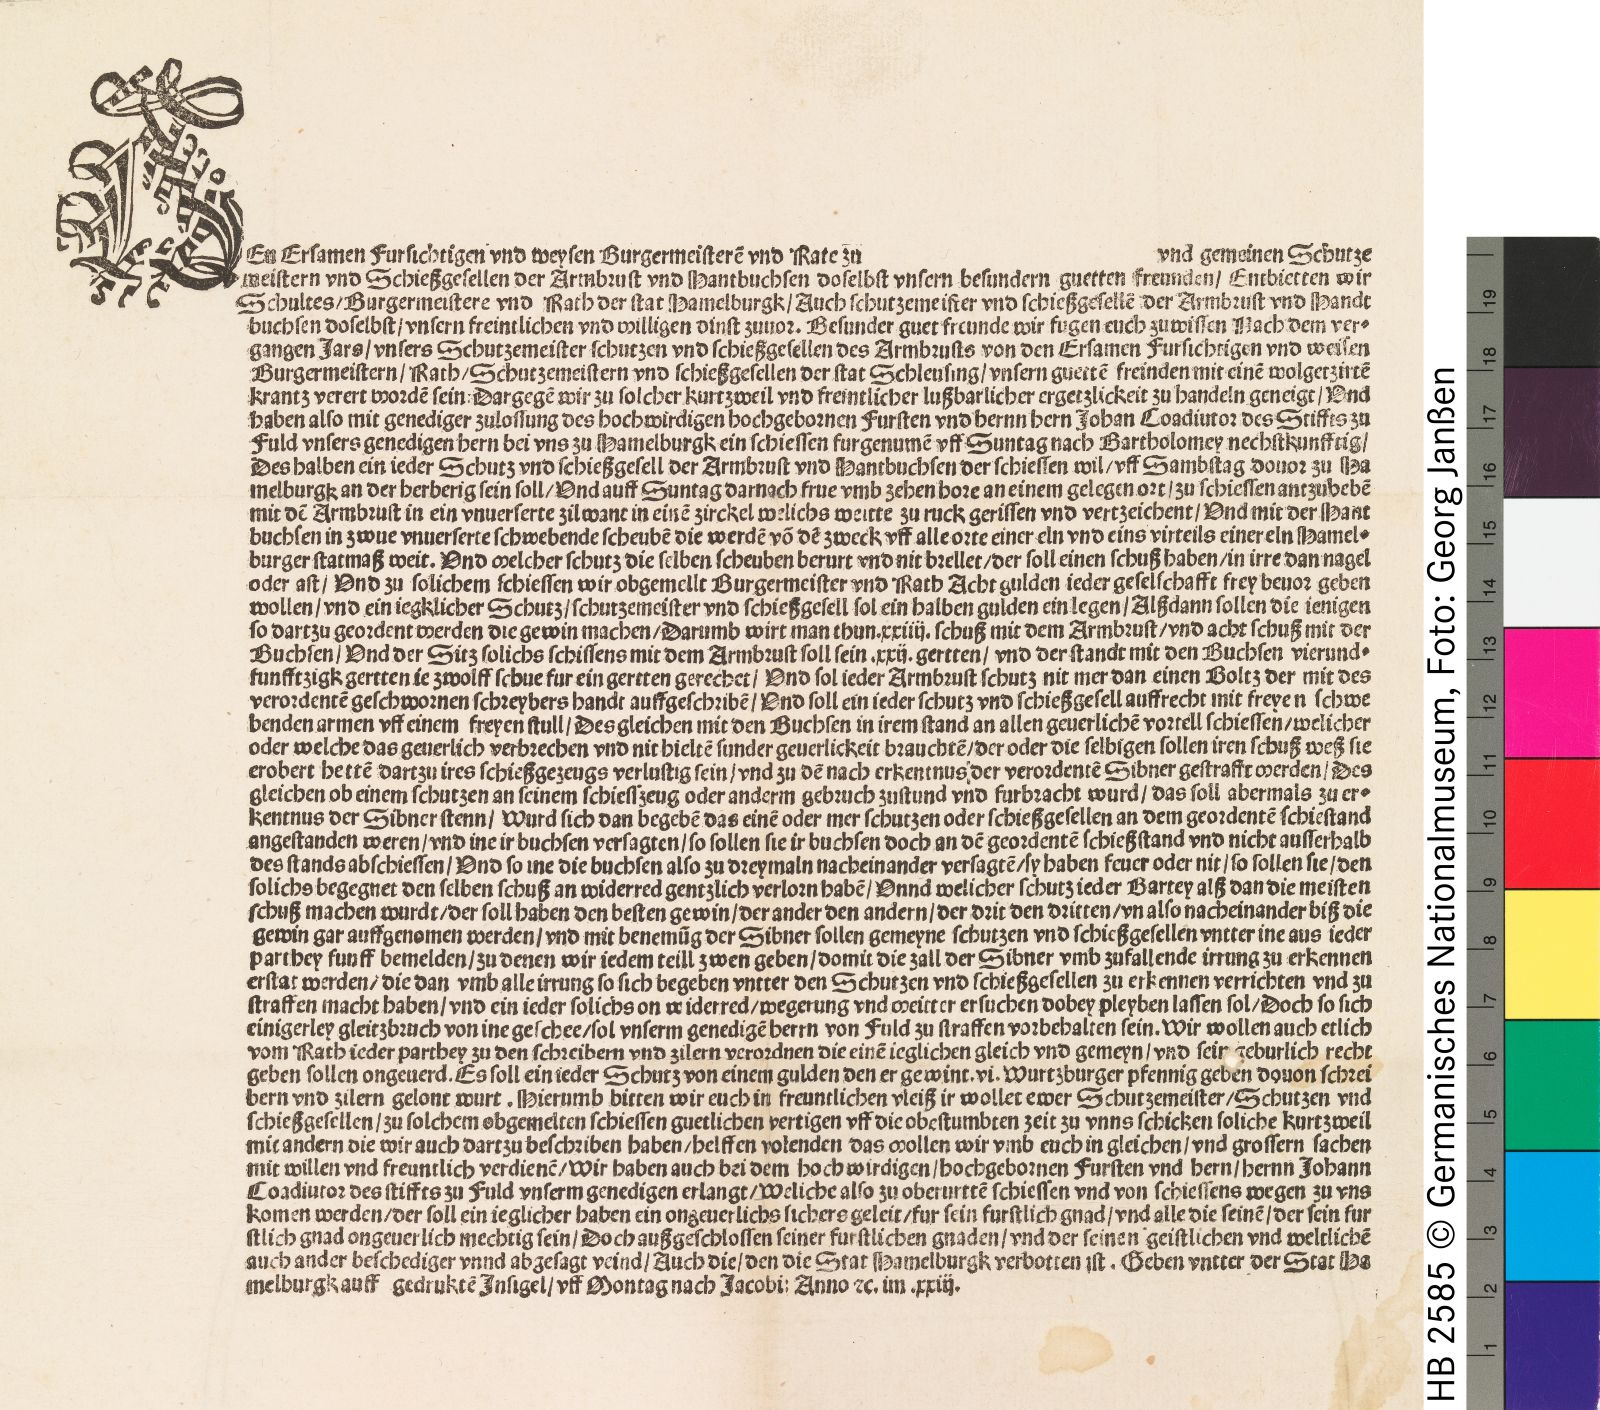 DEn Ersamen Fursichtigen vnd weysen Burgermeisterē vnd Rate zu vnd gemeinen Schutze
meistern vnd Schießgesellen der Armbrust vnd Hantbuchsen doselbst vnsern besundern guetten freunden/ Entbietten wir
Schultes/Burgermeistere vnd Rath der stat Hamelburgk/Auch schutzemeister vnd schießgesellē der Armbrust vnd Handt
buchsen doselbst/vnsern freintlichen vnd willigen dinst zuuor. Besunder guet freunde wir fugen euch zuwissen Nach dem ver⸗
gangen Jars/vnsers Schutzemeister schutzen vnd schießgesellen des Armbrusts von den Ersamen Fursichtigen vnd weisen
Burgermeistern/Rath/Schutzemeistern vnd schießgesellen der stat Schleusing/vnsern guettē freinden mit einē wolgetzirtē
krantz verert wordē sein: Dargegē wir zu solcher kurtzweil vnd freintlicher lußbarlicher ergetzlickeit zu handeln geneigt/Vnd
haben also mit genediger zulossung des hochwirdigen hochgebornen Fursten vnd hernn hern Johan Coadiutor des Stiffts zu
Fuld vnsers genedigen hern bei vns zu Hamelburgk ein schiessen furgenumē vff Suntag nach Bartholomey nechstkunfftig/
Des halben ein ieder Schutz vnd schießgesell der Armbrust vnd Hantbuchsen der schiessen wil/vff Sambstag douor zu Ha
melburgk an der herberig sein soll/Vnd auff Suntag darnach frue vmb zehen hore an einem gelegen ort/zu schiessen antzuhebē
mit dē Armbrust in ein vnuerserte zilwant in einē zirckel welichs weitte zu ruck gerissen vnd vertzeichent/Vnd mit der Hant
buchsen in zwue vnuerserte schwebende scheubē die werdē vō dē zweck vff alle orte einer eln vnd eins virteils einer eln Hamel⸗
burger statmaß weit. Vnd welcher schutz die selben scheuben berurt vnd nit brellet/der soll einen schuß haben/in irre dan nagel
oder ast/ Vnd zu solichem schiessen wir obgemellt Burgermeister vnd Rath Acht gulden ieder geselschafft frey beuor geben
wollen/vnd ein iegklicher Schutz/schutzemeister vnd schießgesell sol ein halben gulden einlegen/Alßdann sollen die ienigen
so dartzu geordent werden die gewin machen/Darumb wirt man thun.xxiiij. schuß mit dem Armbrust/vnd acht schuß mit der
Buchsen/Vnd der Sitz solichs schissens mit dem Armbrust soll sein .xxij. gertten/ vnd der standt mit den Buchsen vierund⸗
funfftzigk gertten ie zwolff schue fur ein gertten gerechet/ Vnd sol ieder Armbrust schutz nit mer dan einen Boltz der mit des
verordentē geschwornen schreybers handt auffgeschribē/Vnd soll ein ieder schutz vnd schießgesell auffrecht mit freyen schwe
benden armen vff einem freyen stull/Des gleichen mit den Buchsen in irem stand an allen geuerlichē vortell schiessen/welicher
oder welche das geuerlich verbrechen vnd nit hieltē sunder geuerlickeit brauchtē/der oder die selbigen sollen iren schuß weß sie
erobert hettē dartzu ires schießgezeugs verlustig sein/vnd zu dē nach erkentnus der verordentē Sibner gestrafft werden/Des
gleichen ob einem schutzen an seinem schieszeug oder anderm gebruch zustund vnd furbracht wurd/das soll abermals zu er⸗
kentnus der Sibner stenn/ Wurd sich dan begebē das einē oder mer schutzen oder schießgesellen an dem geordentē schiestand
angestanden weren/vnd ine ir buchsen versagten/so sollen sie ir buchsen doch an dē geordentē schießstand vnd nicht ausserhalb
des stands abschiessen/Vnd so ine die buchsen also zu dreymaln nacheinander versagtē/sy haben feuer oder nit/so sollen sie/den
solichs begegnet den selben schuß an widerred gentzlich verlorn habē/Vnnd welicher schutz ieder Bartey alß dan die meisten
schuß machen wurdt/der soll haben den besten gewin/der ander den andern/der drit den dritten/vn also nacheinander biß die
gewin gar auffgenomen werden/vnd mit benemūg der Sibner sollen gemeyne schutzen vnd schießgesellen vntter ine aus ieder
parthey funff bemelden/zu denen wir iedem teill zwen geben/domit die zall der Sibner vmb zufallende irrung zu erkennen
erstat werden/die dan vmb alle irrung so sich begeben vntter den Schutzen vnd schießgesellen zu erkennen verrichten vnd zu
straffen macht haben/vnd ein ieder solichs on widerred/wegerung vnd weitter ersuchen dobey pleyben lassen sol/Doch so sich
einigerley gleitzbruch von ine geschee/sol vnserm genedigē herrn von Fuld zu straffen vorbehalten sein. Wir wollen auch etlich
vom Rath ieder parthey zu den schreibern vnd zilern verordnen die einē ieglichen gleich vnd gemeyn/vnd sein geburlich recht
geben sollen ongeuerd. Es soll ein ieder Schutz von einem gulden den er gewint.vi. Wurtzburger pfennig geben douon schrei
bern vnd zilern gelont wurt . Hierumb bitten wir euch in freuntlichen vleiß ir wollet ewer Schutzemeister/Schutzen vnd
schießgesellen/zu solchem obgemelten schiessen guetlichen vertigen vff die obestumbten zeit zu vnns schicken soliche kurtzweil
mit andern die wir auch dartzu beschriben haben/helffen volenden das wollen wir vmb euch in gleichen/vnd grossern sachen
mit willen vnd freuntlich verdienē/Wir haben auch bei dem hochwirdigen/hochgebornen Fursten vnd hern/hernn Johann
Coadiutor des stiffts zu Fuld vnserm genedigen erlangt/Weliche also zu oberurttē schiessen vnd von schiessens wegen zu vns
komen werden/der soll ein ieglicher haben ein ongeuerlichs sichers geleit/fur sein furstlich gnad/vnd alle die seinē/der sein fur
stlich gnad ongeuerlich mechtig sein/Doch außgeschlossen seiner furstlichen gnaden/vnd der seinen geistlichen vnd weltlichē
auch ander beschediger vnnd abgesagt veind/Auch die/den die Stat Hamelburgk verbotten ist . Geben vntter der Stat Ha
melburgk auff gedruktē Insigel/vff Montag nach Jacobi: Anno ꝛc. im .xxiij.
HB 2585 © Germanisches Nationalmuseum, Foto: Georg Janßen
19
18
17
16
15
14
13
12
11
10
9
8
7
6
5
4
3
2
1